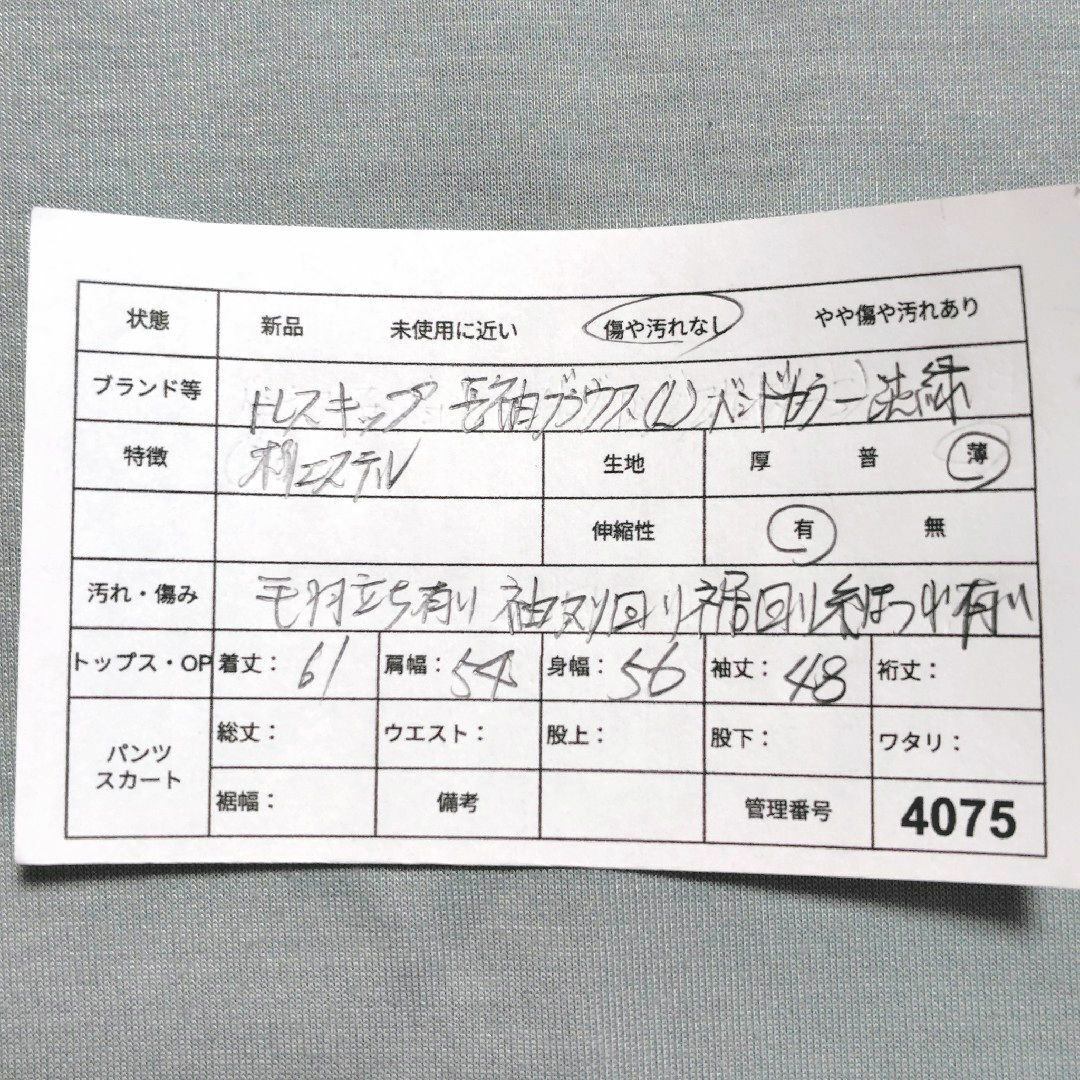 状態 新品 未使用に近い 傷や汚れなし やや傷や汚れあり
ブランド等 ドレスキップ 長袖ブラウス(L)バンドカラー 淡緑
特徴 ポリエステル 生地 厚 普 薄
伸縮性 有 無
汚れ・傷み 毛羽立ち有り 袖刳り回り裾回り糸ほつれ有り
トップス・OP 着丈: 61 肩幅: 54 身幅: 56 袖丈: 48 裄丈:
パンツ スカート 総丈: ウエスト: 股上: 股下: ワタリ:
裾幅: 備考 管理番号 4075